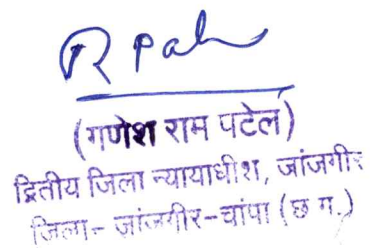 (गणेश राम पटेल)
द्वितीय जिला न्यायाधीश, जांजगीर
जिला- जांजगीर-चांपा (छ ग.)